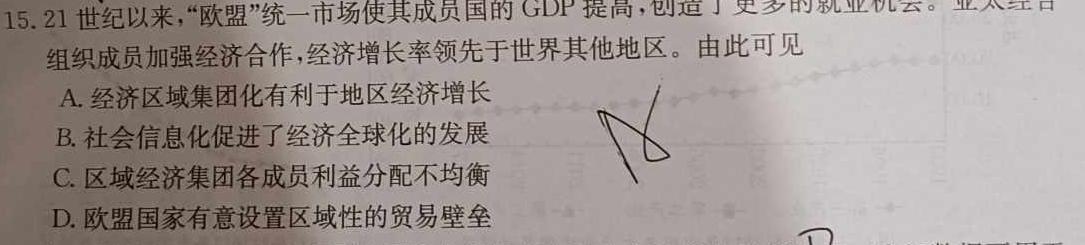 15. 21 世纪以来,“欧盟”统一市场使其成员国的 GDP 提高,创造了更多的就业机会。亚太经合
组织成员加强经济合作,经济增长率领先于世界其他地区。由此可见
A. 经济区域集团化有利于地区经济增长
B. 社会信息化促进了经济全球化的发展
C. 区域经济集团各成员利益分配不均衡
D. 欧盟国家有意设置区域性的贸易壁垒